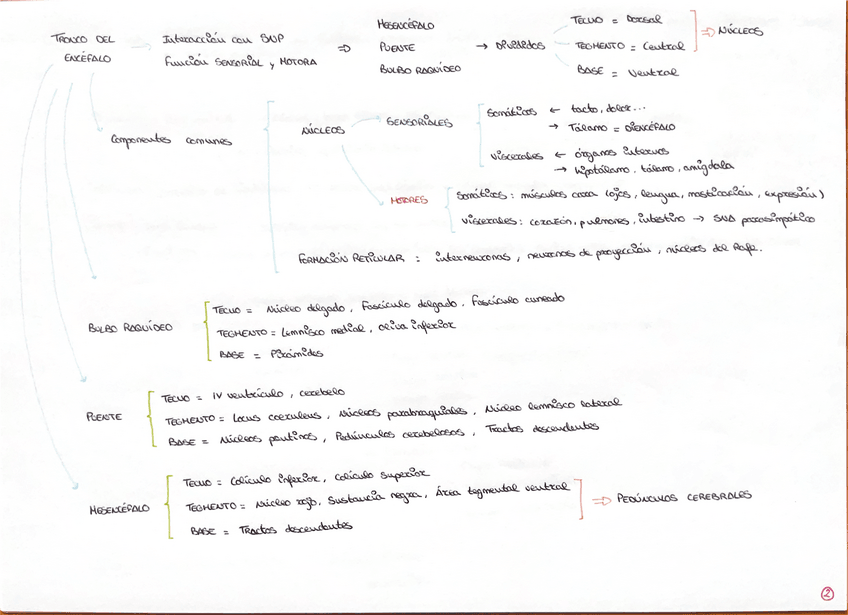 TRONCO DEL ENCÉFALO
Interacción con SNP
Función SENSORIAL y MOTORA
⇒
MESENCÉFALO
PUENTE
BULBO RAQUÍDEO
→ DIVIDIDOS
TECHO = Dorsal
TEGMENTO = Central
BASE = Ventral
⇒ NÚCLEOS
Componentes comunes
NÚCLEOS
SENSORIALES
Somáticos ← tacto, dolor...
→ Tálamo = DIENCÉFALO
Viscerales ← órganos internos
→ hipotálamo, tálamo, amígdala
MOTORES
Somáticos : músculos cara (ojos, lengua, masticación, expresión)
Viscerales : corazón, pulmones, intestino → SNA parasimpático
FORMACIÓN RETICULAR : interneuronas, neuronas de proyección, núcleos del Rafe.
BULBO RAQUÍDEO
TECHO = Núcleo delgado, Fascículo delgado. Fascículo cuneado
TEGMENTO = Lemnisco medial, oliva inferior
BASE = Pirámides
PUENTE
TECHO = IV ventrículo, cerebelo
TEGMENTO = Locus coeruleus, Núcleos parabraquiales, Núcleo lemnisco lateral
BASE = Núcleos pontinos, Pedúnculos cerebelosos, Tractos descendentes
MESENCÉFALO
TECHO = Colículo inferior, colículo superior
TEGMENTO = Núcleo rojo, Sustancia negra, Área tegmental ventral
BASE = Tractos descendentes
⇒ PEDÚNCULOS CEREBRALES
2